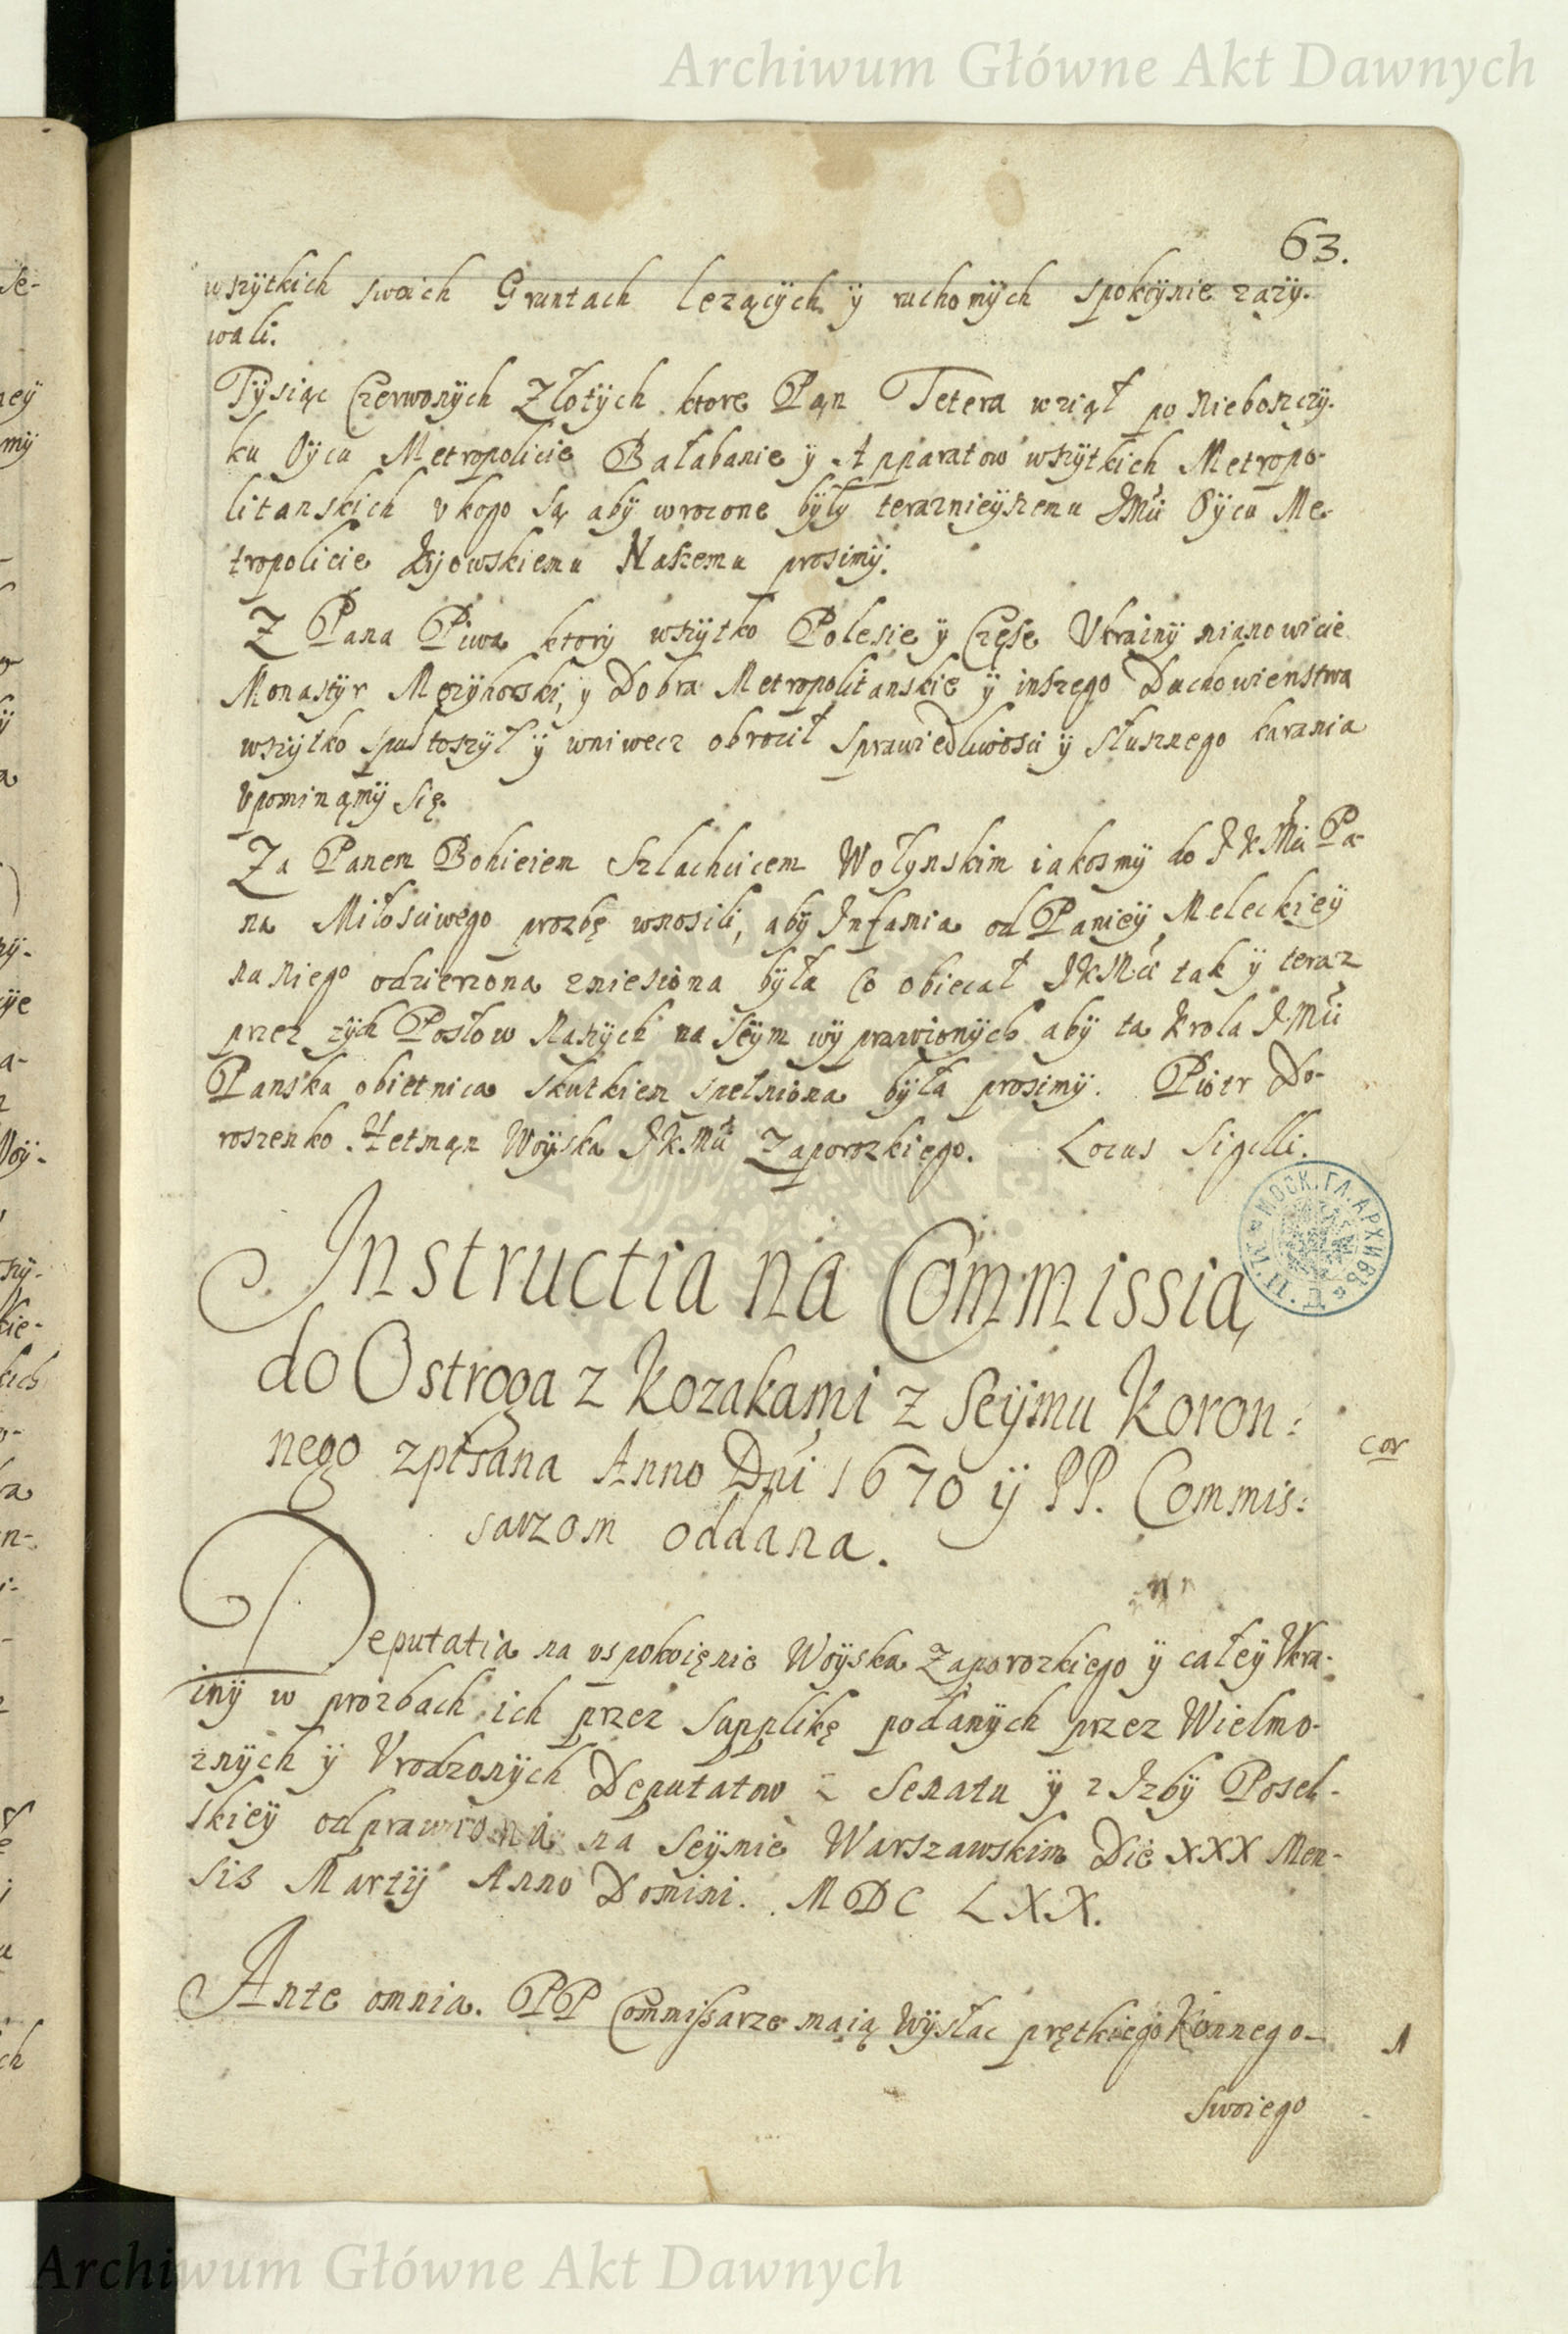 Archiwum Główne Akt Dawnych
63.
wszytkich swoich Gruntach lezących y ruchomych spokoynie zazy-
wali.
Tysiąc Czerwonych Złotych ktore Pąn Tetera wziął po Nieboszczy-
ku Oycu Metropolicie Bałabanie y Apparatow wszytkich Metropo-
litanskich v kogo są aby wrocone były teraznieyszemu JMci Oycu Me-
tropolicie Kijowskiemu Naszemu prosimy.
Z Pana Piwa ktory wszytko Polesie y Częsc Vkrainy mianowicie
Monastyr Mezyhorski, y Dobra Metropolitanskie y inszego Duchowienstwa
wszytko spustoszył y wniwecz obrocił sprawiedliwosci y słusznego karania
vpominąmy się.
Za Panem Bohieiem Szlachcicem Wołynskim iakosmy do JKMci Pa-
na Miłosciwego prozbę wnosili, aby Infamia od Paniey Meleckiey
na niego odzierzona zniesiona była Co obiecał JKMci tak y teraz
przez tych Posłow Naszych na Seym wyprawionych aby ta Krola JMci
Panska obietnica skutkiem spełniona była prosimy. Piotr Do-
roszenko Hetmąn Woyska JK.Mci Zaporozkiego. Locus Sigilli.
МОСК. ГЛ. АРХИВЪ
Instructia na Commissią
do Ostroga z Kozakami z Seymu Koron:
cor
nego zpisana Anno Dni 1670 y PP. Commis:
sarzom oddana.
Deputatia na vspokoięnie Woyska Zaporozkiego y całey Vkra-
iny w prozbach ich przez Supplikę podanych przez Wielmo-
znych y Vrodzonych Deputatow z Senatu y z Izby Posel-
skiey odprawiona na Seymie Warszawskim Die XXX Men-
sis Martij Anno Domini. MDC LXX.
Ante omnia. PP Commissarze maią Wysłac prętkiego Konnego
1
swoiego
Archiwum Główne Akt Dawnych